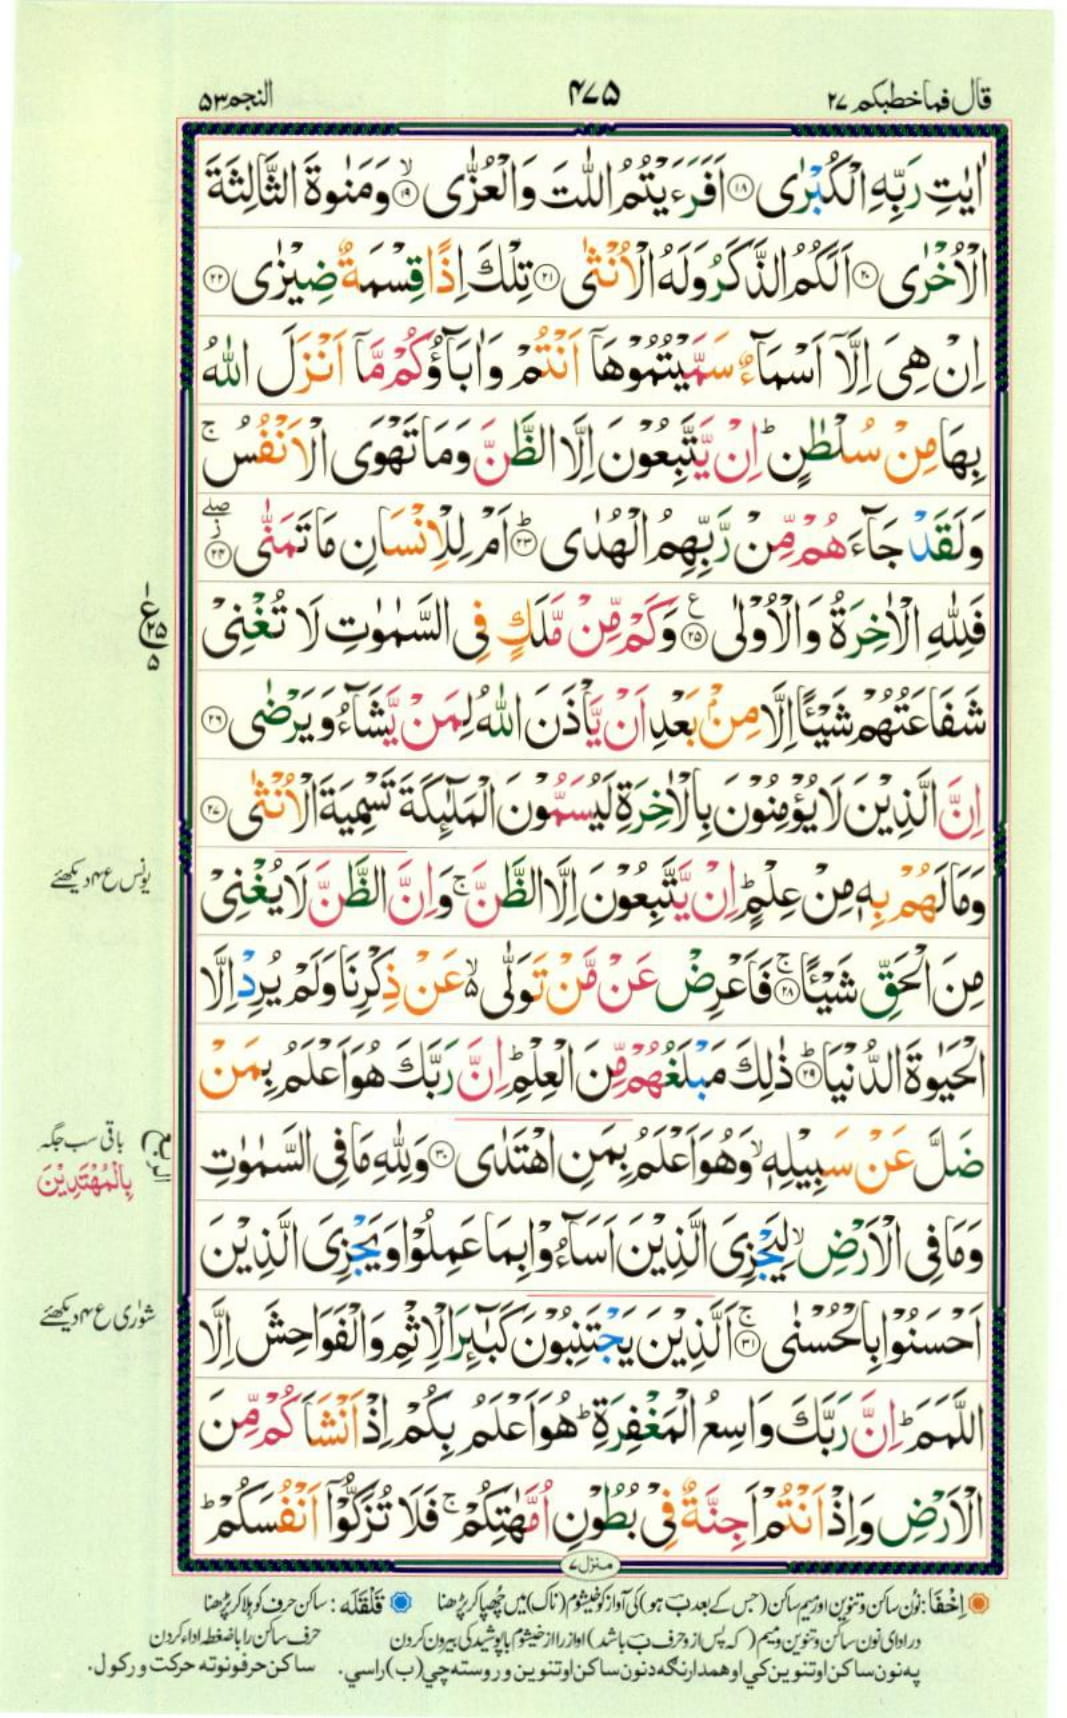 قال فما خطبکم ۲۷
۴۷۵
النجم ۵۳
اٰیٰتِ رَبِّهِ الْكُبْرٰى ۝۱۸ اَفَرَءَیْتُمُ اللّٰتَ وَالْعُزّٰى ۝۱۹ۙ وَمَنٰوةَ الثَّالِثَةَ
الْاُخْرٰى ۝۲۰ اَلَكُمُ الذَّكَرُ وَلَهُ الْاُنْثٰى ۝۲۱ تِلْكَ اِذًا قِسْمَةٌ ضِیْزٰى ۝۲۲
اِنْ هِیَ اِلَّاۤ اَسْمَآءٌ سَمَّیْتُمُوْهَاۤ اَنْتُمْ وَاٰبَآؤُكُمْ مَّاۤ اَنْزَلَ اللّٰهُ
بِهَا مِنْ سُلْطٰنٍ ؕ اِنْ یَّتَّبِعُوْنَ اِلَّا الظَّنَّ وَمَا تَهْوَى الْاَنْفُسُ ۚ
وَلَقَدْ جَآءَهُمْ مِّنْ رَّبِّهِمُ الْهُدٰى ۝۲۳ؕ اَمْ لِلْاِنْسَانِ مَا تَمَنّٰى ۝۲۴ۖز
فَلِلّٰهِ الْاٰخِرَةُ وَالْاُوْلٰى ۝۲۵ع وَكَمْ مِّنْ مَّلَكٍ فِی السَّمٰوٰتِ لَا تُغْنِیْ
شَفَاعَتُهُمْ شَیْـًٔا اِلَّا مِنْۢ بَعْدِ اَنْ یَّاْذَنَ اللّٰهُ لِمَنْ یَّشَآءُ وَیَرْضٰى ۝۲۶
اِنَّ الَّذِیْنَ لَا یُؤْمِنُوْنَ بِالْاٰخِرَةِ لَیُسَمُّوْنَ الْمَلٰٓىِٕكَةَ تَسْمِیَةَ الْاُنْثٰى ۝۲۷
وَمَا لَهُمْ بِهٖ مِنْ عِلْمٍ ؕ اِنْ یَّتَّبِعُوْنَ اِلَّا الظَّنَّ ۚ وَاِنَّ الظَّنَّ لَا یُغْنِیْ
مِنَ الْحَقِّ شَیْـًٔا ۝۲۸ۚ فَاَعْرِضْ عَنْ مَّنْ تَوَلّٰى ۙ۬ عَنْ ذِكْرِنَا وَلَمْ یُرِدْ اِلَّا
الْحَیٰوةَ الدُّنْیَا ۝۲۹ؕ ذٰلِكَ مَبْلَغُهُمْ مِّنَ الْعِلْمِ ؕ اِنَّ رَبَّكَ هُوَ اَعْلَمُ بِمَنْ
ضَلَّ عَنْ سَبِیْلِهٖ ۙ وَهُوَ اَعْلَمُ بِمَنِ اهْتَدٰى ۝۳۰ وَلِلّٰهِ مَا فِی السَّمٰوٰتِ
وَمَا فِی الْاَرْضِ ۙ لِیَجْزِیَ الَّذِیْنَ اَسَآءُوْا بِمَا عَمِلُوْا وَیَجْزِیَ الَّذِیْنَ
اَحْسَنُوْا بِالْحُسْنٰى ۝۳۱ۚ اَلَّذِیْنَ یَجْتَنِبُوْنَ كَبٰٓىِٕرَ الْاِثْمِ وَالْفَوَاحِشَ اِلَّا
اللَّمَمَ ؕ اِنَّ رَبَّكَ وَاسِعُ الْمَغْفِرَةِ ؕ هُوَ اَعْلَمُ بِكُمْ اِذْ اَنْشَاَكُمْ مِّنَ
الْاَرْضِ وَاِذْ اَنْتُمْ اَجِنَّةٌ فِیْ بُطُوْنِ اُمَّهٰتِكُمْ ۚ فَلَا تُزَكُّوْۤا اَنْفُسَكُمْ ؕ
منزل ۷
ع
۲۵
۵
یونس ع ۴ دیکھئے
باقی سب جگہ
بِالْمُهْتَدِیْنَ
الربع
شوریٰ ع ۴ دیکھئے
اِخْفَا : نُون ساکن و تنوین اور میم ساکن (جس کے بعد ب ہو) کی آواز کو خیشوم (ناک) میں چُھپا کر پڑھنا
قَلْقَلَه : ساکن حرف کو ہلا کر پڑھنا
در ادای نون ساکن و تنوین و میم ( که پس از و حرف ب باشد ) آواز را از خیشوم با پوشیدگی بیرون کردن
حرف ساکن را با ضغطه اداء کردن
په نون ساکن او تنوین کي او همدارنګه د نون ساکن او تنوین وروسته چي (ب) راسي.
ساکن حرفونو ته حرکت ورکول.